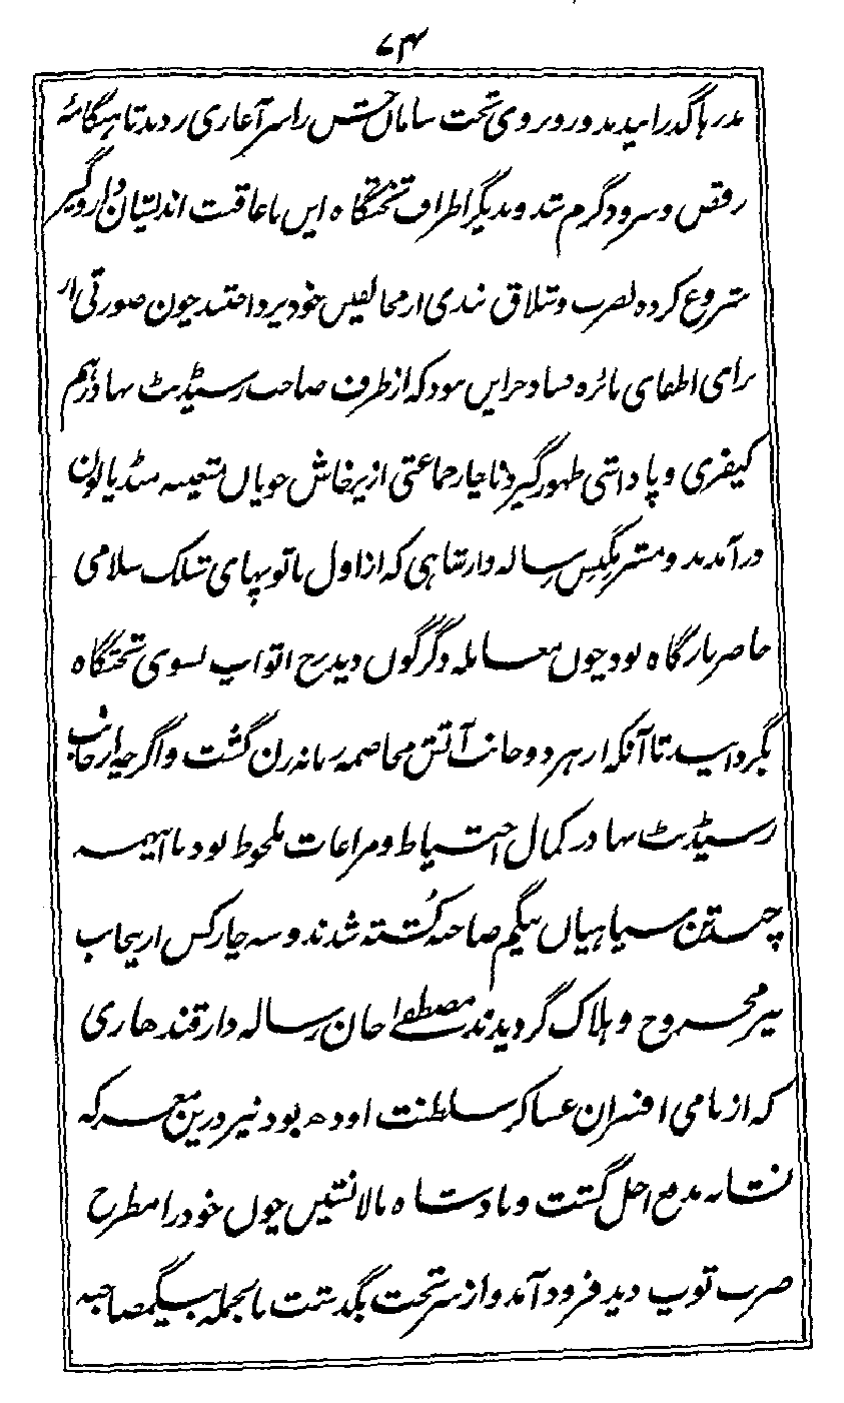 ۷۴
نذرها گذرانیدند و روبروی تخت سامان جشن را سرآغازی زدند تا هنگامهٔ
رقص و سرود گرم شد و دیگر اطراف تختگاه این ناعاقبت اندیشان دار و گیر
شروع کرده بضرب و شلاق تندی از مخالفین خود پرداختند چون صورتی از
برای اطفای نائره فساد جز این نبود که از طرف صاحب رسیڈنٹ بهادر هم
کیفری و پاداشی ظهور گیرد ناچار جماعتی از پرخاش جویان متعینه منڈیانون
درآمدند و مسٹر رساله دار شاهی که از اول با توپهای شلک سلامی
حاضر بارگاه بود چون معامله دگرگون دید رخ اتواپ بسوی تختگاه
بگردانید تا آنکه از هر دو جانب آتش مخاصمه زبانه زن گشت و اگرچه از جانب
رسیڈنٹ بهادر کمال احتیاط و مراعات ملحوظ بود با اینهمه
چند تن سپاهیان بیگم صاحبه کُشته شدند و سه چار کس ازینجانب
نیز مجروح و هلاک گردیدند مصطفےٰ خان رساله دار قندهاری
که از نامی افسران عساکر سلطنت اودھ بود نیز درین معرکه
نشانه اجل گشت و پادشاه بالانشین چون خود را مطرح
ضرب توپ دید فرود آمد و از سر تخت بگذشت بالجمله بیگم صاحبه